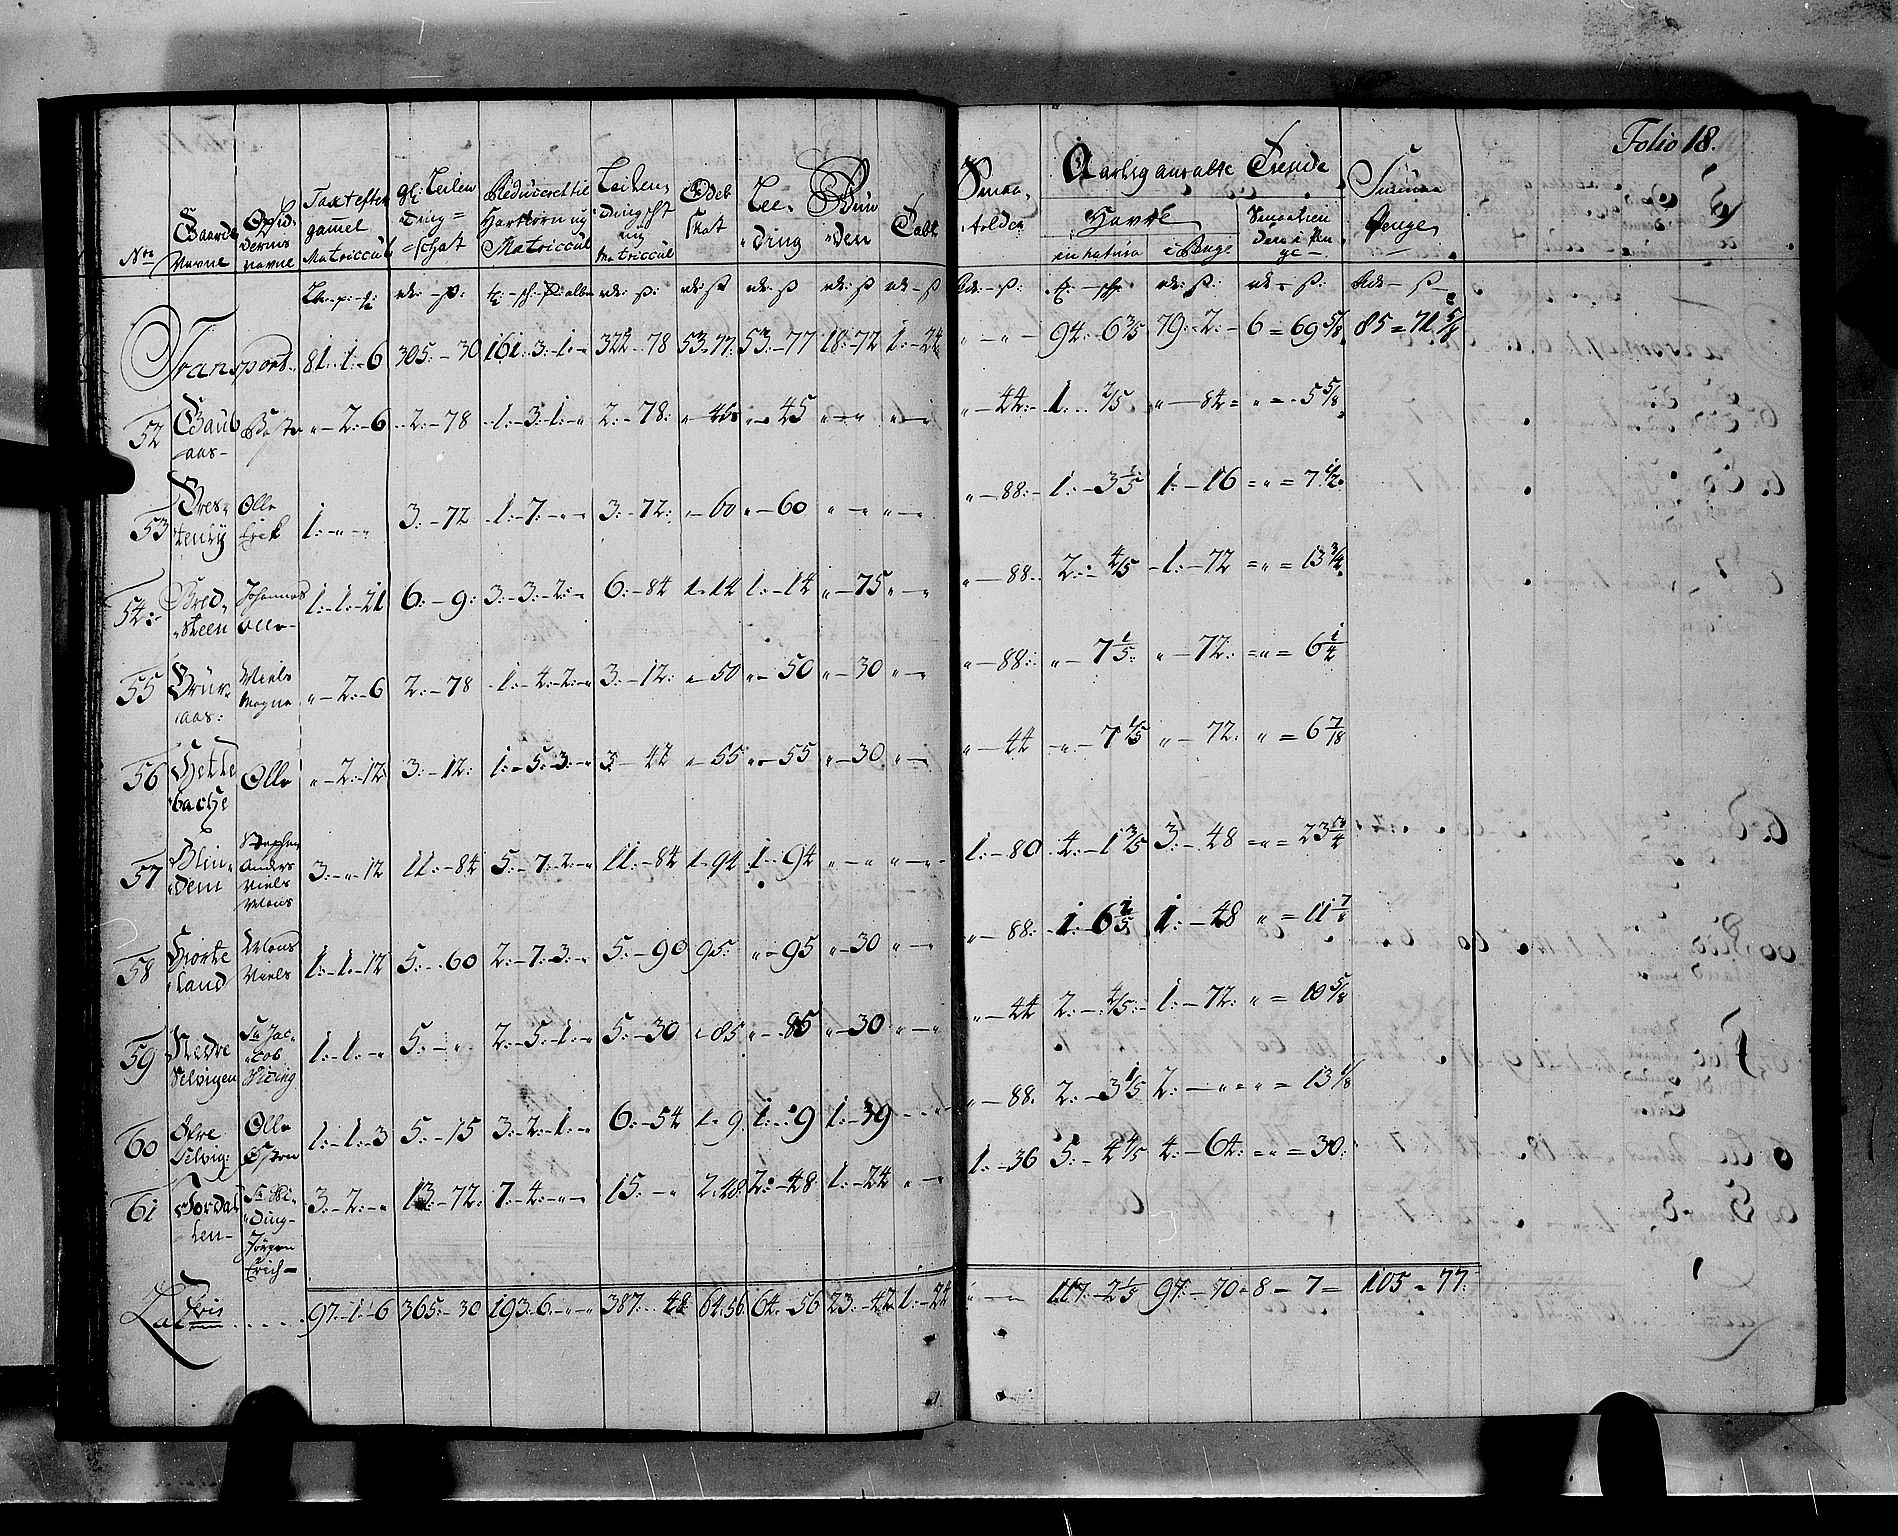 Folio 18.
Nro Gaards Navne Opsid- dernes navne Taxt efter gammel Matriccul gl: Leilen- dings- schatt Reduceret til Hartkorn ny Matriccul Leilen- dings sktt ny Matriccul Odel skat Lee- ding Wiis- øren Talle
Smaa- Aolder Aarlig ansatte Tiende Summa
Havre Smaatien- den i Pen- ge Penge
in natura i Penge
Transport. 81.-1.-6 305.-30 161.-3.-1.-" 322-78 53.77. 53.-77 18.-72 1.-24 "-"- 94.-6 3/5 79.-2.- 6=69 5/8 85=71 5/8
52 Gaub- aas- "-2.-6 2.-78 1.-3.-1.-" 2.-78. "-45 "-45 "-" "-" "-44.- 1.. 2/5 "-84= "=5 5/8
53 Bres- tenly Olle Erik 1.-"-" 3.-72 1.-7.-"-" 3.-72. "-60 "-60 "-" "-" "-88.- 1.-3 1/5 1.-16 ="=7 1/2
54. Bred- steen Johannes Olle- 1.-1.-21 6.-9. 3.-3.-2.-" 6.-84 1.14 1.-14 "-75 "-" "-88.. 2.-4/5 1.-72 ="=13 3/4
55 Brur- aas. Niels Mogns "-2.-6 2.-78 1.-4.-2.-" 3.-12. "-50 "-50 "-30 "-" "-88. "-7 1/5 "-72. ="=6 1/4
56 Hette- bache Olle "-2.-12 3.-12. 1.-5.-3.-" 3.-42 "-55 "-55 "-30 "-" "-44 "-7 1/5 "-72. "=6 7/8
57 Blin- dem Stephen Anders Niels Mons 3.-"-12 11.-84 5.-7.-2.-" 11.-84 1.94 1.-94 "-" "-" 1.-80 4.-1 3/5 3.-48 ="=23 3/4
58 Hiorte- land Mons Niels 1.-1.-12 5.-60 2.-7.-3.-" 5.-90 95. "-95 "-30 "-" "-88. 1.-6 2/5 1.-48 "=11 7/8
59 Nedre Selvigen Sr Jac- cob Widing 1.-1.-" 5.-" 2.-5.-1.-" 5.-30 "-85 "-85 "-30 "-" "-44 2.-4/5. 1.-72. "=10 5/8
60 Øfre Selvig. Olle Espen 1.-1.-3 5.-75 3.-2.-1.-" 6.-54 1.9. 1.-9 1.-39 "-" "-88. 2.-3 1/5 2.-"= "=13 1/8
61 Jordal- len- Sr Wi- ding- Jørgen Erich- 3.-2.-" 13.-72. 7.-4.-"-" 15.-" 2.48. 2.-48 1.-24 "-" 1.-36 5.-4 4/5 4.-64. ="=30.
Lateris ..... 97.-1.-6 365.-30 193.6.-"-" 387.-48 64.56 64.-56 23.-42 1.-24 "-" 117.-2 1/5 97.-70. 8-7= 105=77.